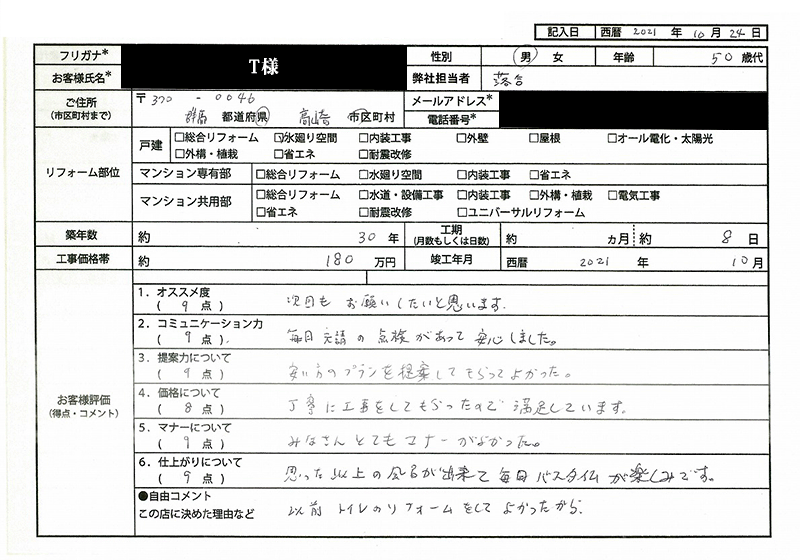 記入日 西暦 2021 年 10 月 24 日
フリガナ* T様 性別 男 女 年齢 50 歳代
お客様氏名* 弊社担当者 落合
ご住所 (市区町村まで) 〒370-0046 メールアドレス*
群馬 都道府県 高崎 市区町村 電話番号*
リフォーム部位
戸建 □総合リフォーム ☑水廻り空間 □内装工事 □外壁 □屋根 □オール電化・太陽光
□外構・植栽 □省エネ □耐震改修
マンション専有部 □総合リフォーム □水廻り空間 □内装工事 □省エネ
マンション共用部 □総合リフォーム □水道・設備工事 □内装工事 □外構・植栽 □電気工事
□省エネ □耐震改修 □ユニバーサルリフォーム
築年数 約 30 年 工期 (月数もしくは日数) 約 ヵ月 約 8 日
工事価格帯 約 180 万円 竣工年月 西暦 2021 年 10 月
お客様評価 (得点・コメント)
1．オススメ度
( 9 点 ) 次回も お願いしたいと思います.
2．コミュニケーション力
( 9 点 ) 毎日 元請の点検があって安心しました。
3．提案力について
( 9 点 ) 安い方のプランを提案してもらってよかった。
4．価格について
( 8 点 ) 丁寧に工事をしてもらったので満足しています。
5．マナーについて
( 9 点 ) みなさんとてもマナーがよかった。
6．仕上がりについて
( 9 点 ) 思った以上の風呂が出来て毎日バスタイムが楽しみです。
●自由コメント
この店に決めた理由など 以前 トイレのリフォームをしてよかったから.